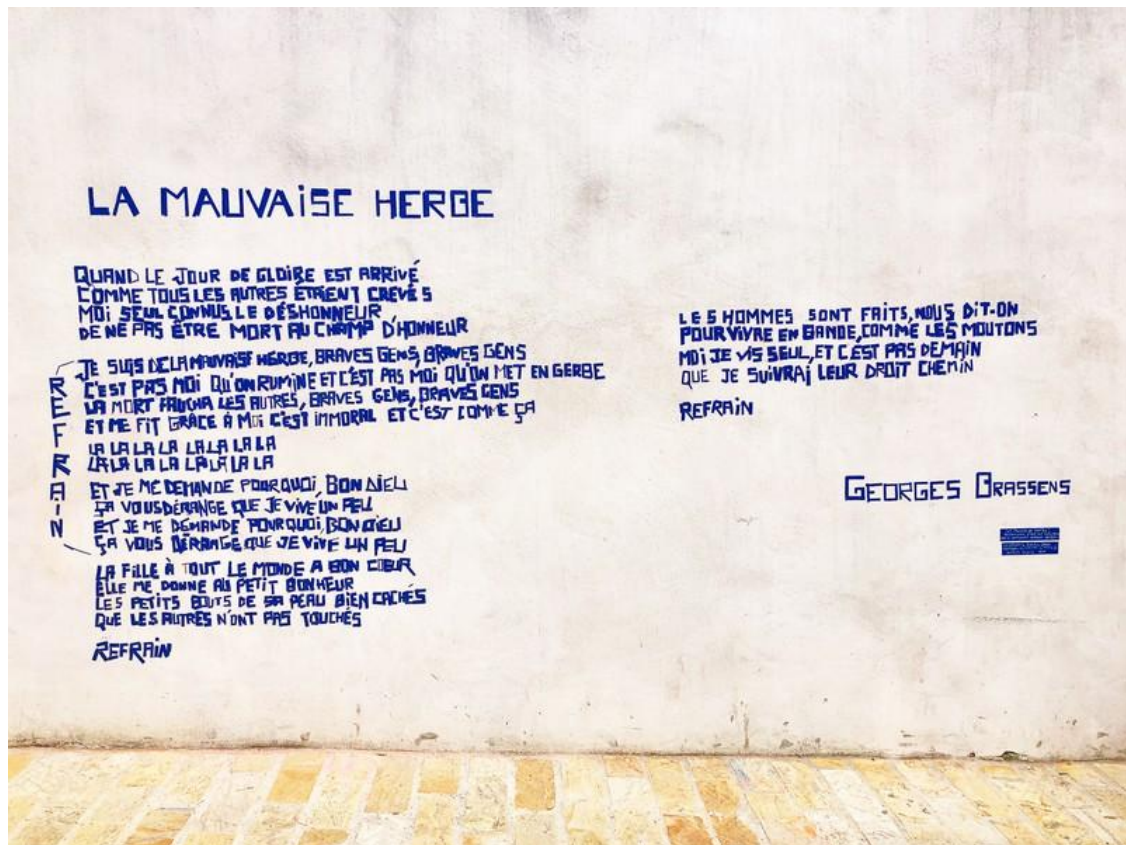 LA MAUVAiSE HERBE
QUAND LE JOUR DE GLOIRE EST ARRIVÉ
COMME TOUS LES AUTRES ÉTAIENT CREVÉS
MOi SEUL CONNUS LE DÉSHONNEUR
DE NE PAS ÊTRE MORT AU CHAMP D'HONNEUR
REFRAIN
JE SUIS DE LA MAUVAISE HERBE, BRAVES GENS, BRAVES GENS
C'EST PAS MOI QU'ON RUMINE ET C'EST PAS MOI QU'ON MET EN GERBE
LA MORT FAUCHA LES AUTRES, BRAVES GENS, BRAVES GENS
ET ME FIT GRÂCE À MOI C'EST IMMORAL ET C'EST COMME ÇA
LA LA LA LA LA LA LA LA
LA LA LA LA LA LA LA LA
ET JE ME DEMANDE POURQUOI, BON DIEU
ÇA VOUS DÉRANGE QUE JE VIVE UN PEU
ET JE ME DEMANDE POURQUOI, BON DIEU
ÇA VOUS DÉRANGE QUE JE VIVE UN PEU
LA FILLE À TOUT LE MONDE A BON CŒUR
ELLE ME DONNE AU PETIT BONHEUR
LES PETITS BOUTS DE SA PEAU BIEN CACHÉS
QUE LES AUTRES N'ONT PAS TOUCHÉS
REFRAiN
LES HOMMES SONT FAITS, NOUS DIT-ON
POUR VIVRE EN BANDE, COMME LES MOUTONS
MOI JE VIS SEUL, ET C'EST PAS DEMAIN
QUE JE SUIVRAI LEUR DROIT CHEMIN
REFRAiN
GEORGES BRASSENS